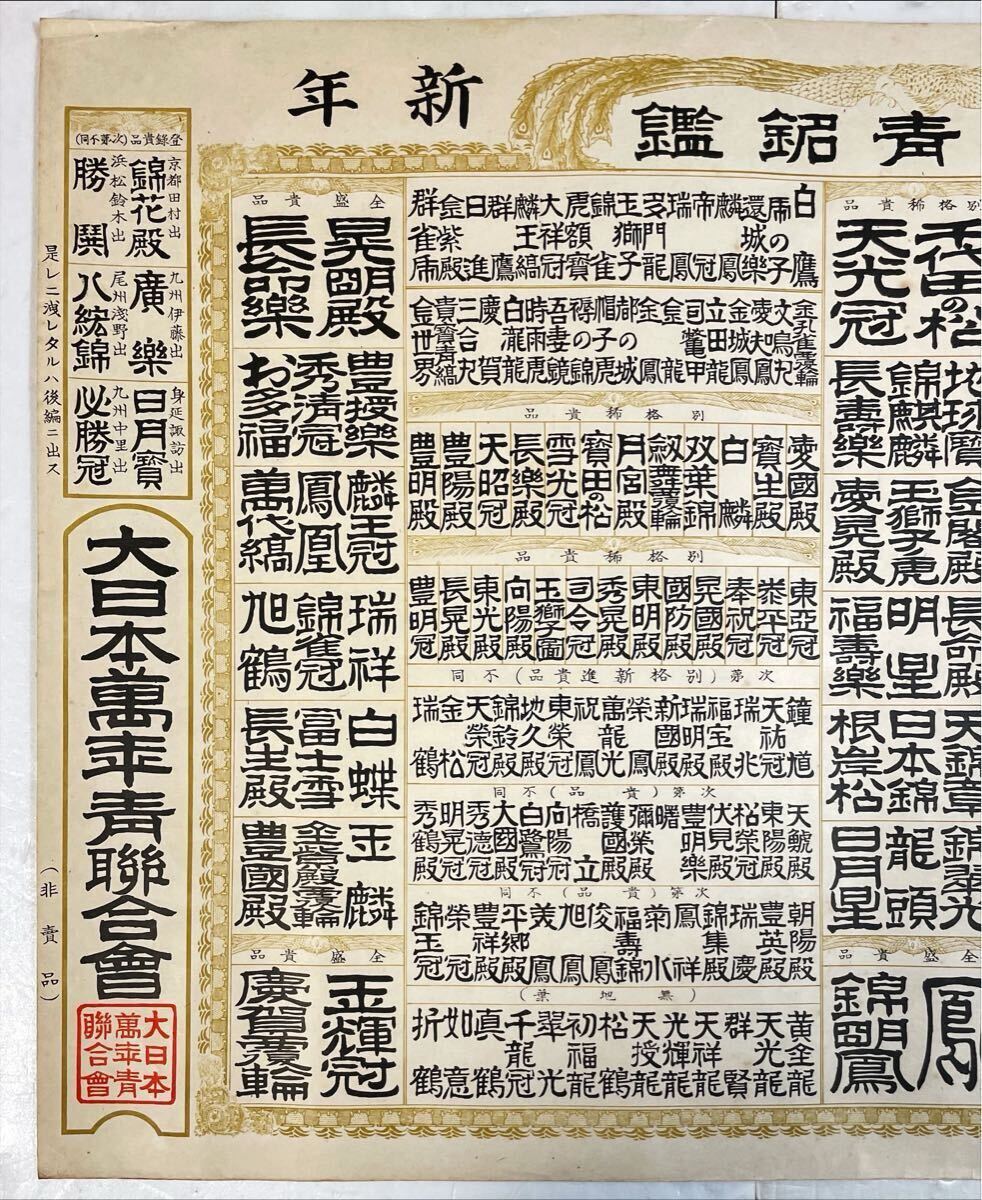 新年
青銘鑑
別格稀貴品
千代田の松
天光冠
地球寶
錦麒麟
長壽樂
金閣殿
玉獅子虎
愛晃殿
長命殿
明星
福壽樂
天錦章
日本錦
根岸松
錦翠光
龍頭
日月星
全盛貴品
鳳
錦鳳
白鷹
乕の子
還城樂
麟鳳
帝冠
瑞鳳
多門龍
玉獅子
錦雀
虎額寶
大祥冠
麟王縞
群鷹
日進
金紫殿
群雀乕
金孔雀覆輪
文鳴丸
愛夫鳳
金城鳳
立田龍
司鼈甲
金龍
金鳳
都の城
帽子乕
褥の錦
吾妻鏡
時雨乕
白龍
慶賀
三合丸
貴寶青縞
金世界
別格稀貴品
愛國殿
寶生殿
白麟
双葉錦
劔舞覆輪
月宮殿
寶田の松
雪光冠
長樂殿
天昭冠
豊陽殿
豊明殿
別格稀貴品
東亞冠
泰平冠
奉祝冠
晃國殿
國防殿
東明殿
秀晃殿
司令冠
玉獅子図
向陽殿
東光殿
長晃殿
豊明冠
次第(別格新進貴品)不同
鐘馗
天祐冠
瑞兆
福宝殿
瑞明殿
新國殿
榮鳳
萬龍光
祝鳳
東榮冠
地久殿
錦鈴殿
天榮冠
金松
瑞鶴
次第(貴品)不同
天皩殿
東陽殿
松榮冠
伏見殿
豊明樂
曙
彌榮殿
護國殿
橋立
向陽冠
白鷺冠
大國殿
秀德殿
明晃冠
秀鶴殿
次第(貴品)不同
朝陽殿
豊英殿
瑞慶
錦集殿
鳳祥
菊水
福壽錦
俊鳳
旭鳳
美鳳
平郷殿
豊祥殿
榮冠
錦玉冠
(無地葉)
黄金龍
天光龍
群賢
天祥龍
光輝龍
天授龍
松鶴
初福龍
翠光
千龍冠
真鶴
如意
折鶴
全盛貴品
晃明殿
長命樂
豊授樂
秀淸冠
お多福
麟王冠
鳳凰
萬代縞
瑞祥
錦雀冠
旭鶴
白蝶
冨士雪
長生殿
玉麟
豊國殿
全盛貴品
玉輝冠
慶賀覆輪
登錄貴品(次第不同)
京都田村出
錦花殿
浜松鈴木出
勝鬨
九州伊藤出
廣樂
尾州淺野出
八紘錦
身延諏訪出
日月寶
九州中里出
必勝冠
大日本萬年青聯合會
大日本
萬年青
聯合會
是レニ洩レタルハ後編ニ出ス
(非賣品)